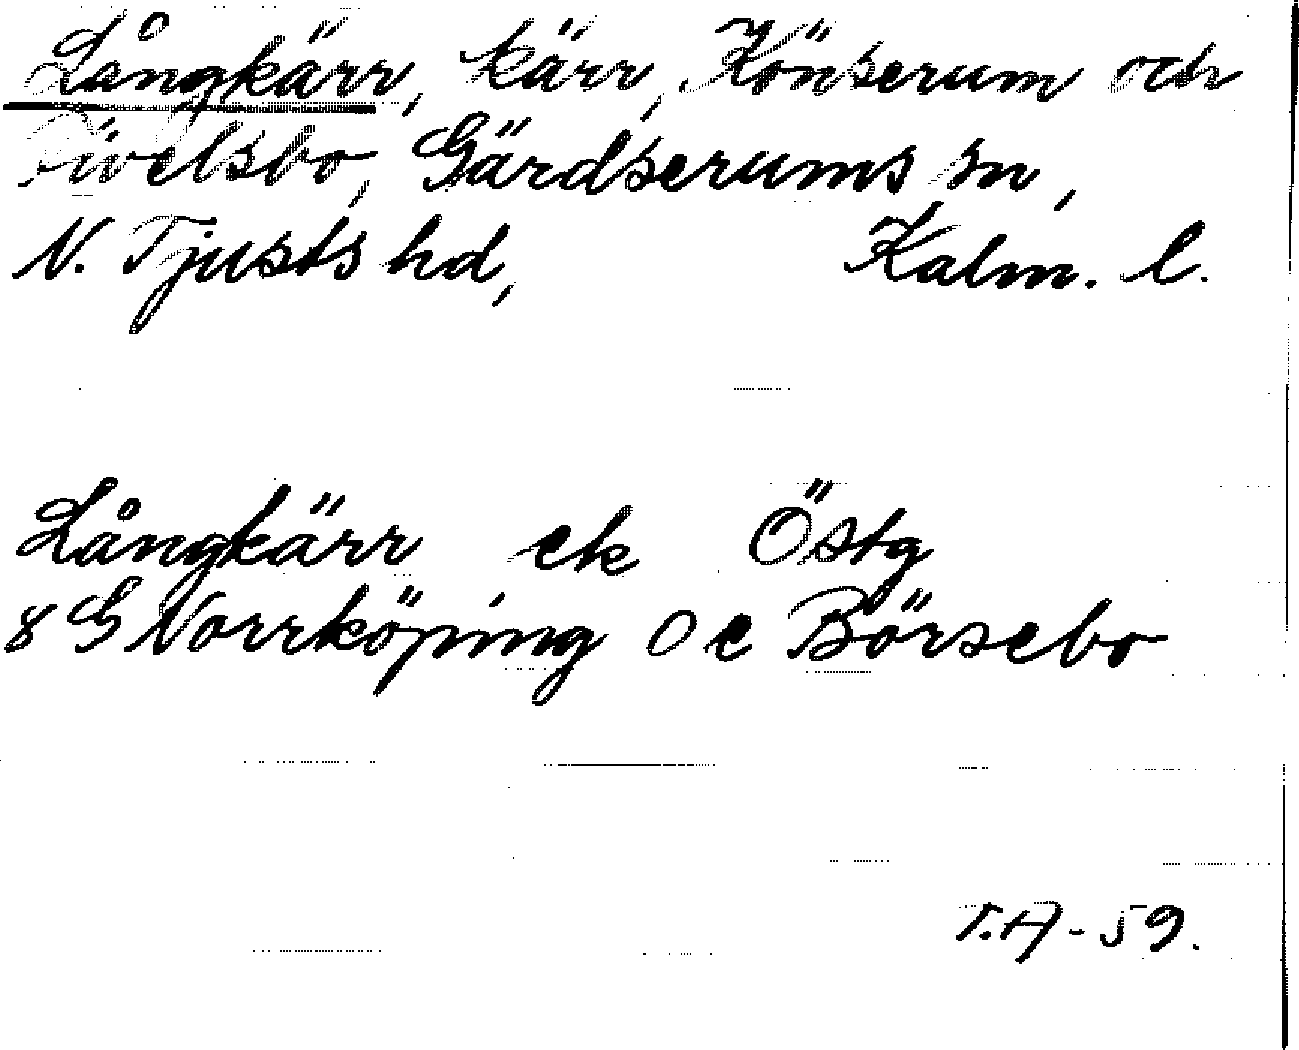 Långkärr, kärr, Könserum och
Tivelsbo, Gärdserums sn,
N. Tjusts hd, Kalm. l.
Långkärr ek Östg
8 G Norrköping 0 e Börsebo
T.A-59.